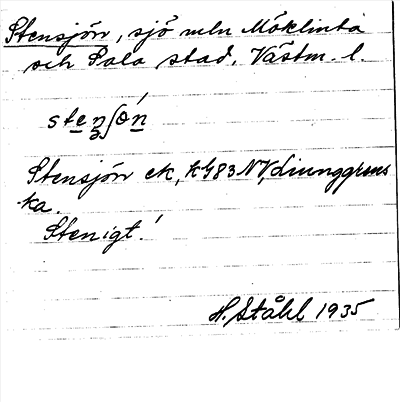 Stensjön, sjö mln Möklinta
och Sala stad. Västm. l.
stenʃön
Stensjön ek, kbl 83 NV, Ljunggrens
ka.
Stenigt!
H. Ståhl 1935